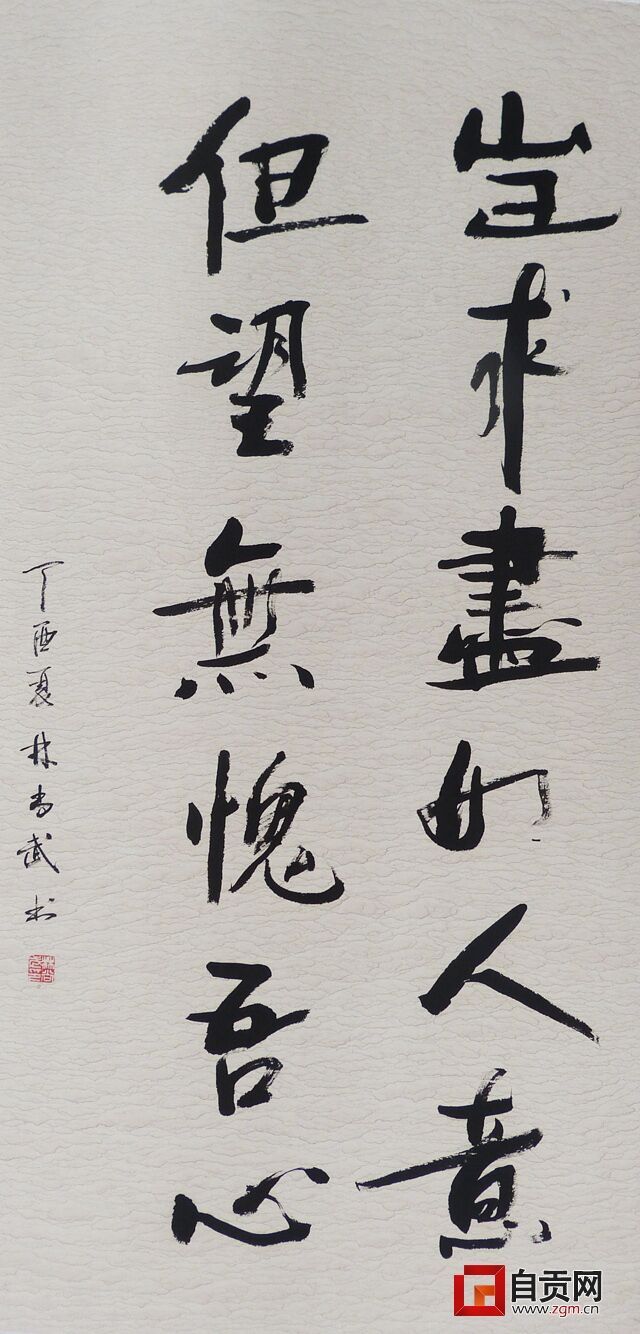 豈求盡如人意
但望無愧吾心
丁酉夏林尚武书
自贡网
www.zgm.cn